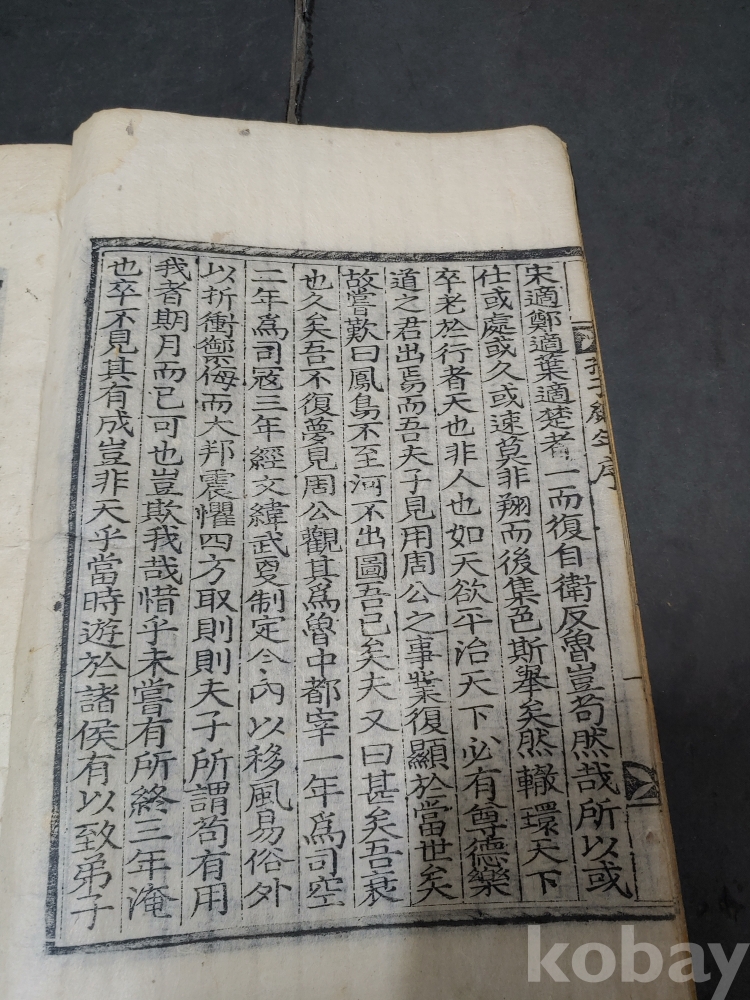 宋適鄭適葉適楚者一而復自衛反魯豈苟然哉所以或
仕或處或久或速莫非翔而後集色斯擧矣然轍環天下
卒老於行者天也非人也如天欲平治天下必有尊德樂
道之君出焉而吾夫子見用周公之事業復顯於當世矣
故嘗歎曰鳳鳥不至河不出圖吾已矣夫又曰甚矣吾衰
也久矣吾不復夢見周公觀其爲魯中都宰一年爲司空
二年爲司寇三年經文緯武夏制定令內以移風易俗外
以折衝禦侮而大邦震懼四方取則則夫子所謂苟有用
我者期月而已可也豈欺我哉惜乎未嘗有所終三年淹
也卒不見其有成豈非天乎當時遊於諸侯有以致弟子
序
一
kobay